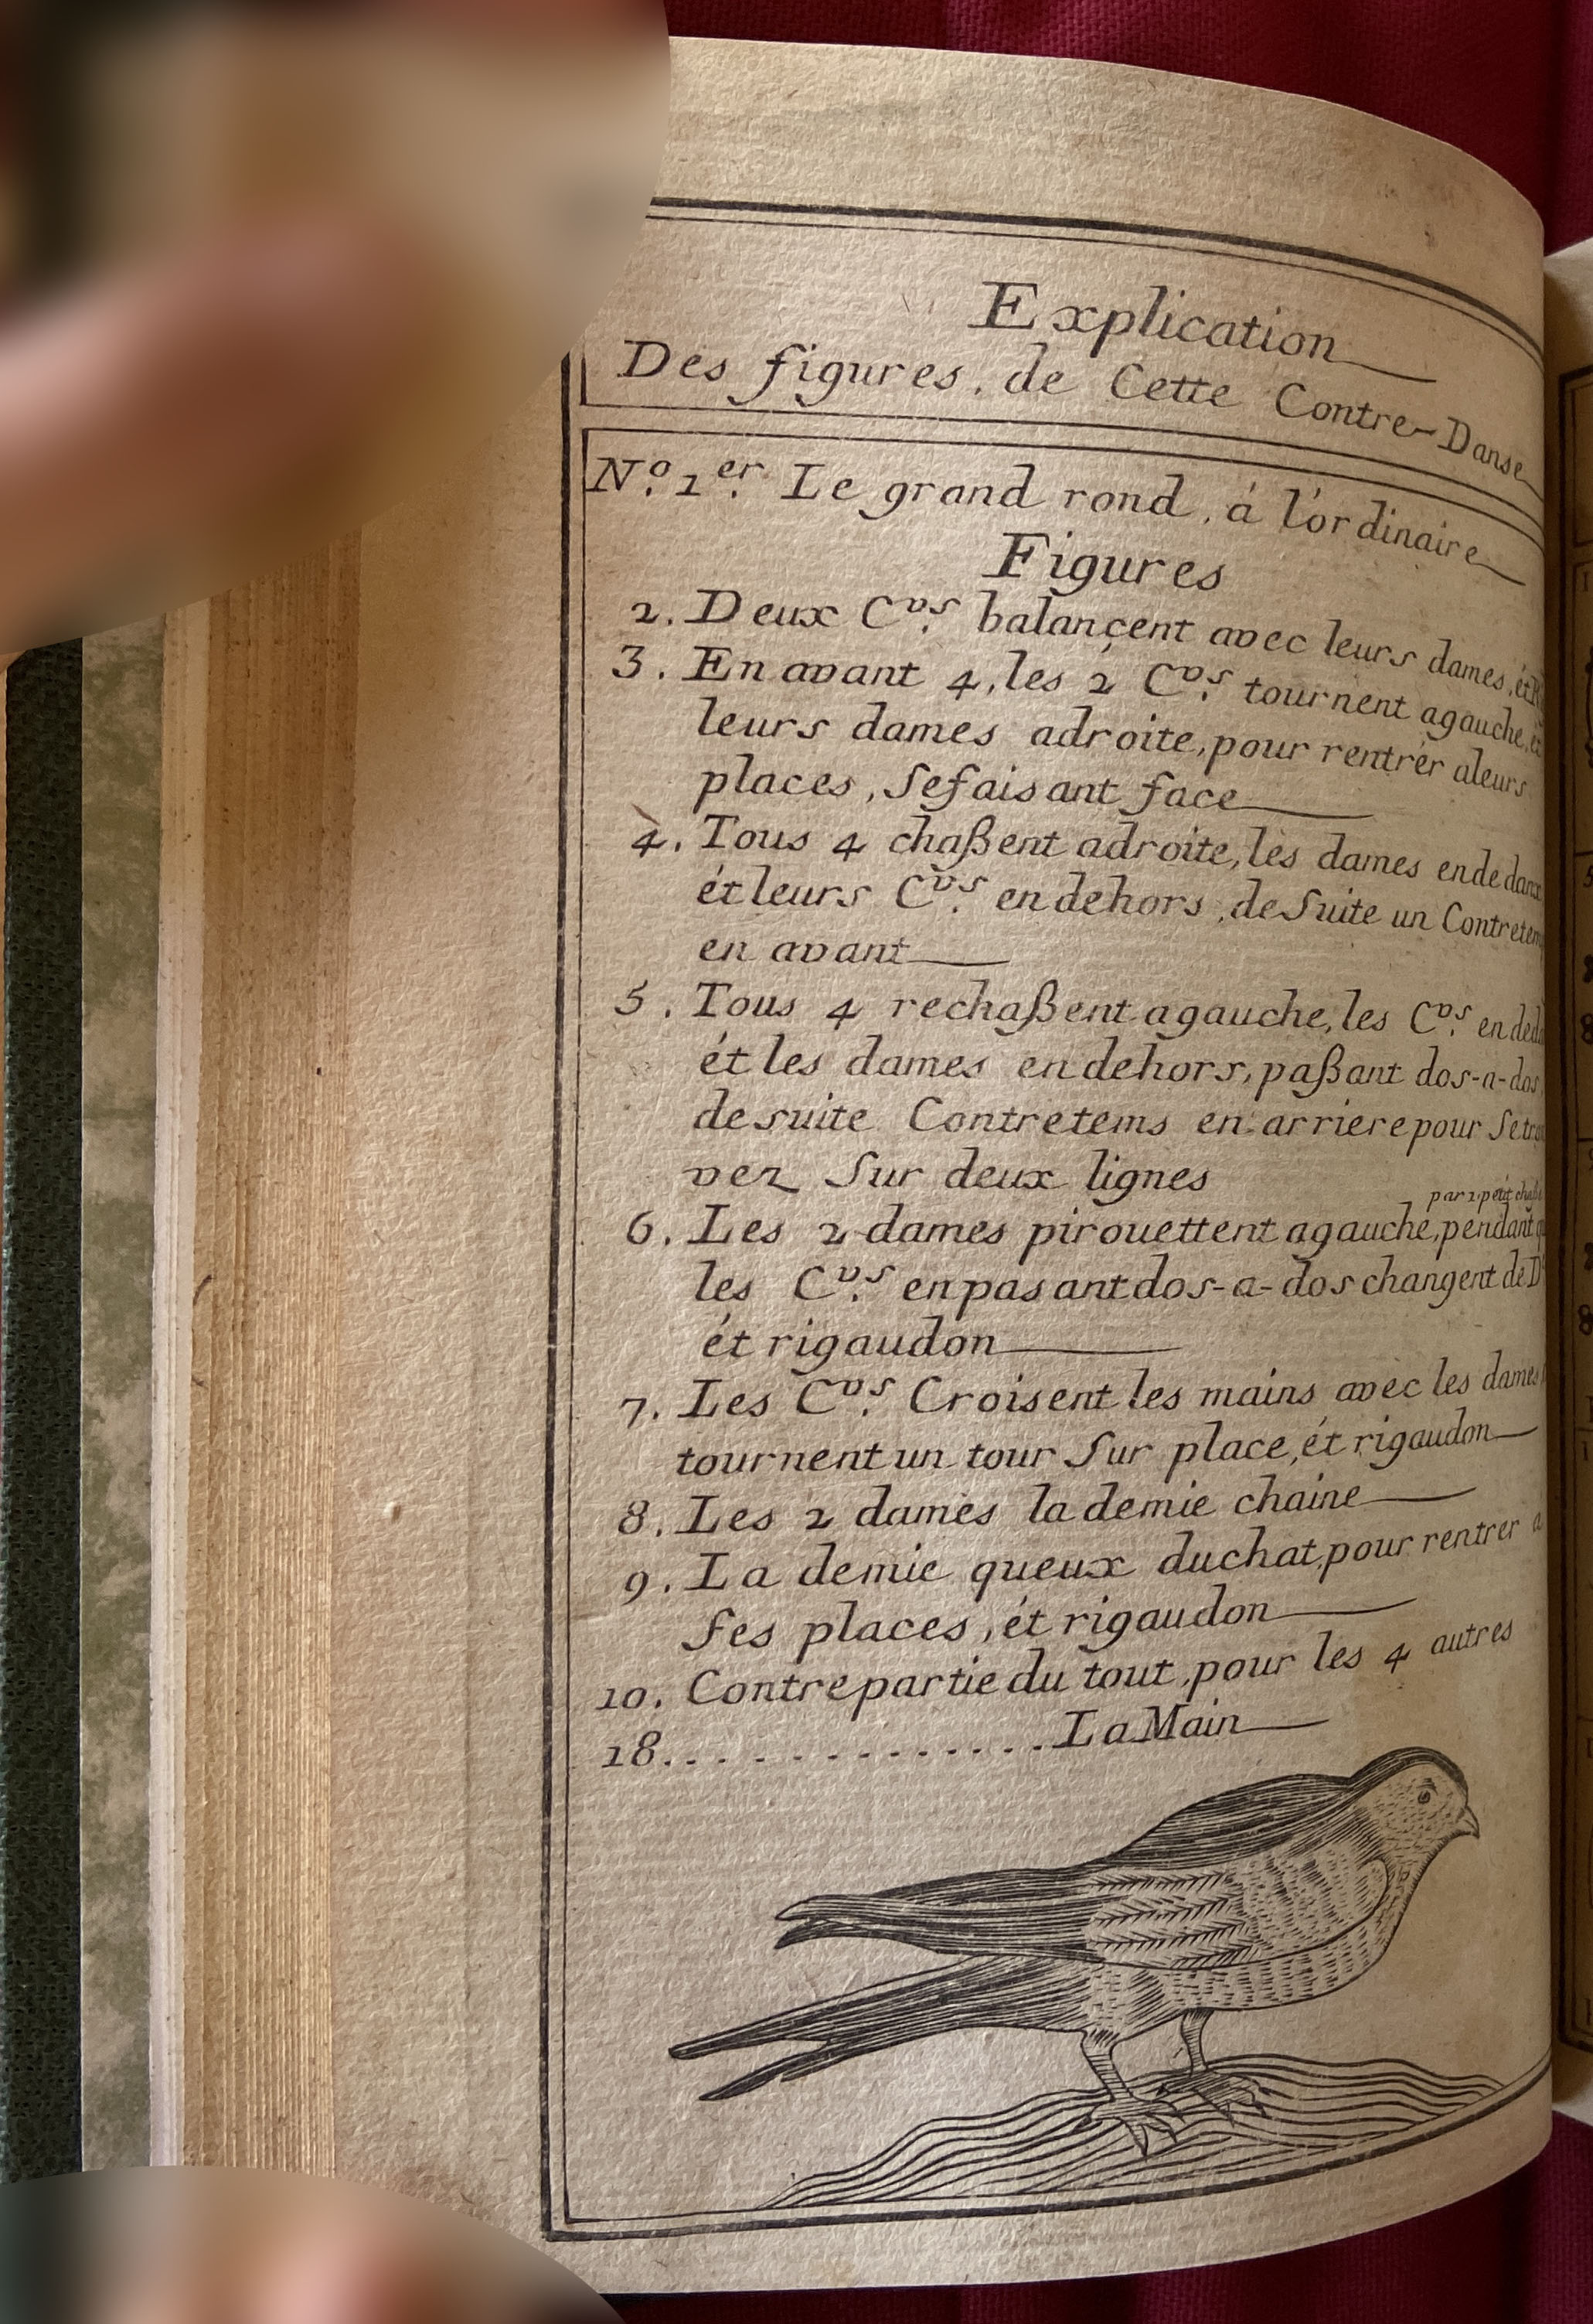 Explication
Des figures, de Cette Contre-Danse
N.º 1.er Le grand rond, á l'ordinaire
Figures
2. Deux C.vs balançent avec leurs dames, ét
3. En avant 4, les 2 C.vs tournent agauche, ét
leurs dames adroite, pour rentrér aleurs
places, Sefaisant face
4. Tous 4 chaßent adroite, les dames endedans
ét leurs C.vs en dehors, deSuite un Contretem
en avant
5. Tous 4 rechaßent agauche, les C.vs en ded
ét les dames en dehors, paßant dos-a-dos,
desuite Contretems en arriere pour Se trou
vez Sur deux lignes
par 2 petit chaß
6. Les 2 dames pirouettent agauche, pendant q
les C.vs en pasant dos-a-dos changent de D
ét rigaudon
7. Les C.vs Croisent les mains avec les dames
tournent un tour Sur place, ét rigaudon
8. Les 2 dames la demie chaine
9. La demie queux duchat, pour rentrer a
Ses places, ét rigaudon
10. Contrepartie du tout, pour les 4 autres
18. . . . . . . . . . . . . . La Main